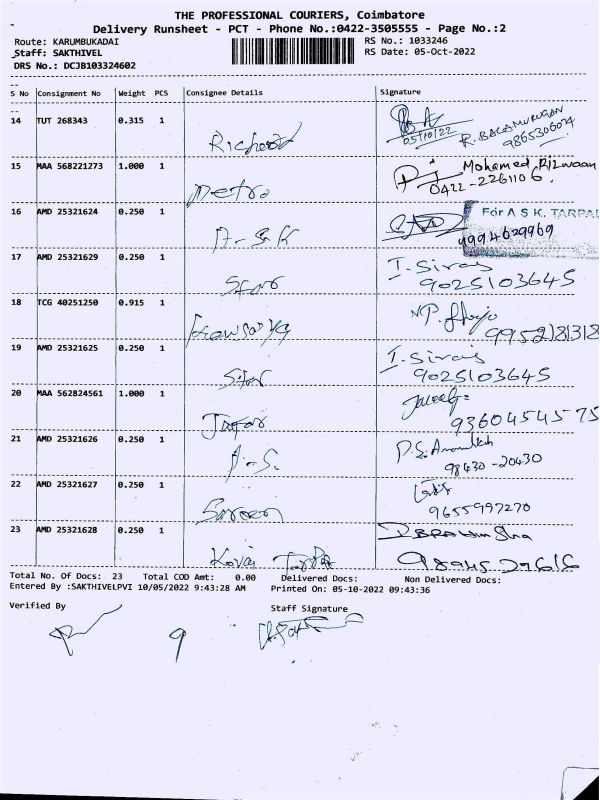 THE PROFESSIONAL COURIERS, Coimbatore
Delivery Runsheet - PCT - Phone No.:0422-3505555 - Page No.:2
Route: KARUMBUKADAI
RS No.: 1033246
Staff: SAKTHIVEL
RS Date: 05-Oct-2022
DRS No.: DCJB103324602
S No Consignment No Weight PCS Consignee Details Signature
14 TUT 268343 0.315 1
05/10/22 R. BALAMURUGAN
9865306074
Richard
15 MAA 568221273 1.000 1
Mohamed Rizwaan
0422-2261106.
Metro
16 AMD 25321624 0.250 1
For A S K. TARPAL
9994629969
A-S K
17 AMD 25321629 0.250 1
I. Siraj
9025103645
Star
18 TCG 40251250 0.915 1
9952181318
19 AMD 25321625 0.250 1
I. Siraj
9025103645
Star
20 MAA 562824561 1.000 1
9360454575
Jafar
21 AMD 25321626 0.250 1
98430-20430
A-S.
22 AMD 25321627 0.250 1
9655997270
23 AMD 25321628 0.250 1
IBRAHIM
9894529616
Kovai Tarpa
Total No. Of Docs: 23 Total COD Amt: 0.00 Delivered Docs: Non Delivered Docs:
Entered By :SAKTHIVELPVI 10/05/2022 9:43:28 AM Printed On: 05-10-2022 09:43:36
Verified By Staff Signature
9